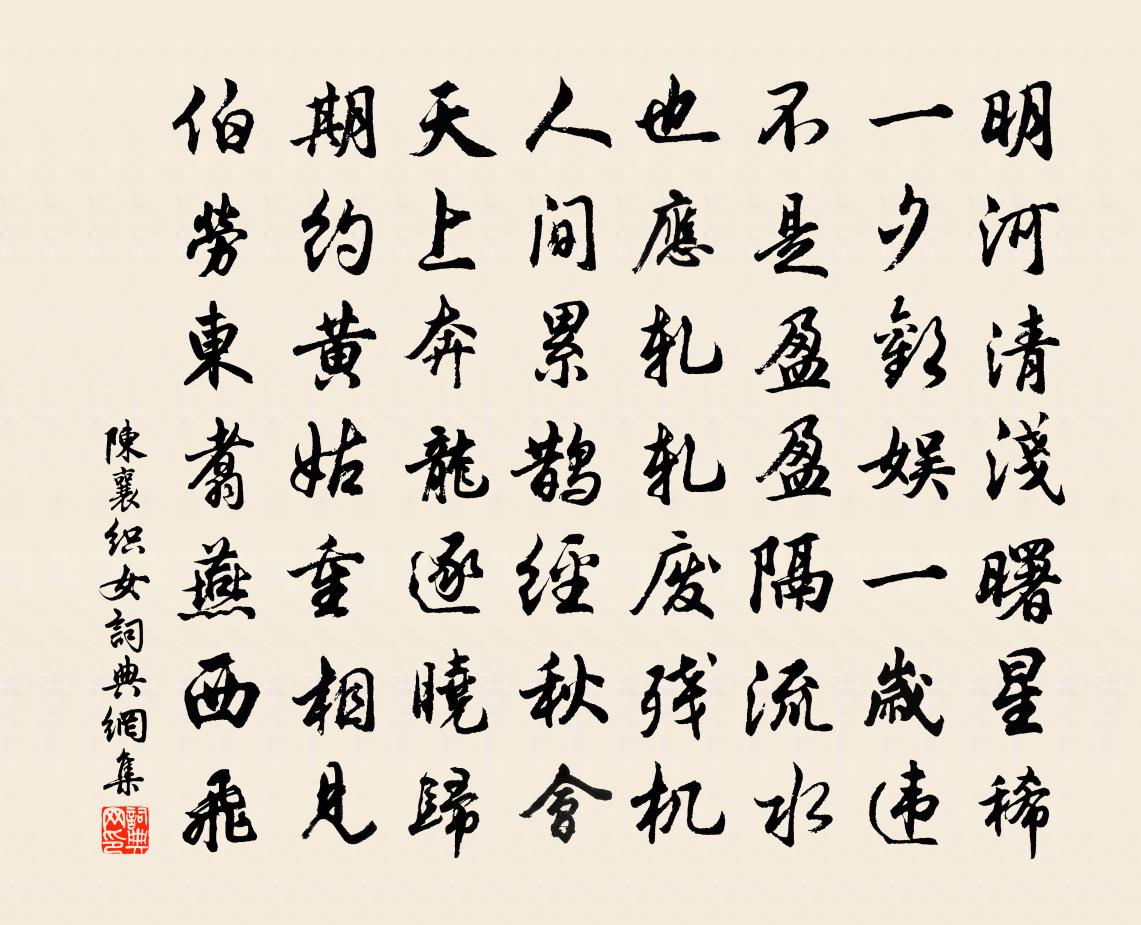 明河清淺曙星稀
一夕歡娛一歲違
不是盈盈隔流水
也應軋軋废殘机
人间累鹊經秋會
天上奔龍逐曉歸
期约黄姑重相見
伯勞東翥燕西飛
陳襄织女詞典網集
詞典网印